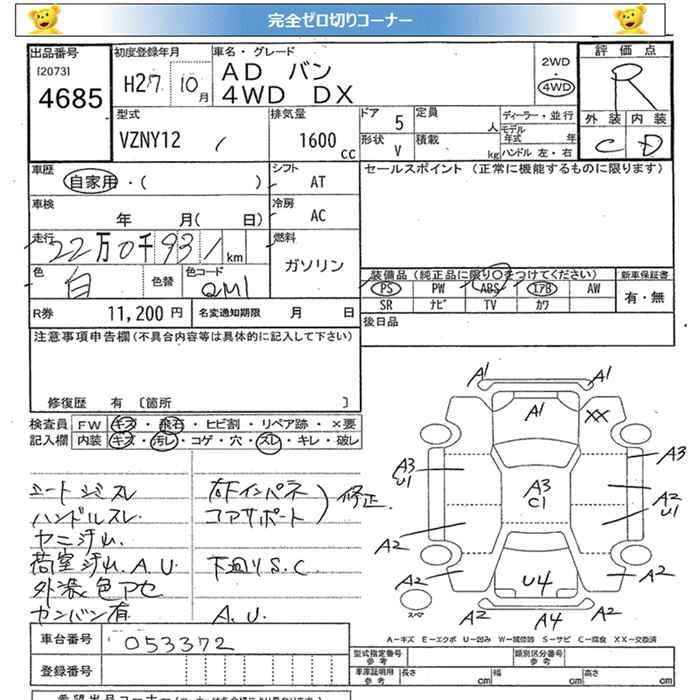 完全ゼロ切りコーナー
出品番号
[2073]
4685
初度登録年月
H27 10月
車名・グレード
AD バン
4WD DX
2WD
・
4WD
評価点
R
外装 内装
C D
型式
VZNY12
排気量
1600 cc
ドア 5
定員 人
形状 V
積載 kg
ディーラー・並行
モデル年式 年
ハンドル 左・右
車歴
自家用・( )
シフト
AT
セールスポイント (正常に機能するものに限ります)
車検
年 月( 日)
冷房
AC
走行
22万0千931km
燃料
ガソリン
色
白
色替
色コード
QM1
装備品(純正品に限り○をつけてください)
PS PW ABS エアB AW
SR ナビ TV カワ
新車保証書
有・無
R券 11,200円
名変通知期限 月 日
後日品
注意事項申告欄(不具合内容等は具体的に記入して下さい)
修復歴 有 〔箇所 〕
検査員記入欄
FW キズ・飛石・ヒビ割・リペア跡・×要
内装 キズ・汚レ・コゲ・穴・スレ・キレ・破レ
シートシミスレ
ハンドルスレ
ヤニ汚レ
荷室汚レ A.U
外装色アセ
カンバン有
右下インパネ
コアサポート
修正
下廻りS.C
A.U.
A1 A1
A1
XX
A3
U1
A3
C1
A3
A2
U1
A2
A2
U4
A2
A2 A4 A2
スペア
A−キズ E−エクボ U−凹み W−補修跡 S−サビ C−腐食 XX−交換済
車台番号
053372
登録番号
型式指定番号
参考
類別区分番号
参考
車庫証明用
参考
長さ cm
幅 cm
高さ cm
希望出品コーナー